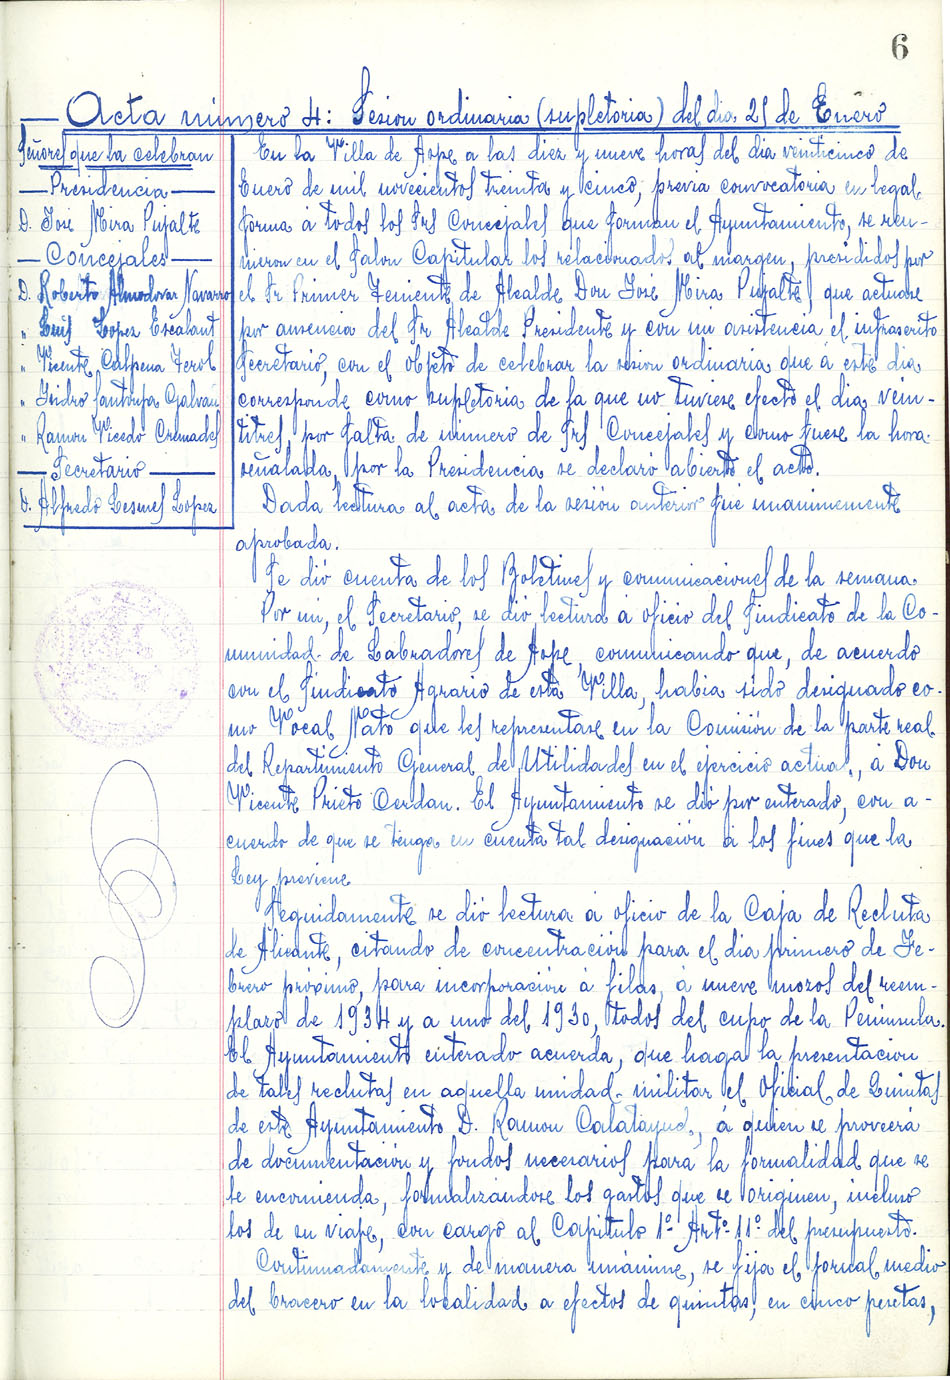 6
Acta número 4: Sesion ordinaria (supletoria) del dia 25 de Enero
Señores que la celebran
Presidencia
D. José Mira Pujalte
Concejales
D. Roberto Almodovar Navarro
" Luis Lopez Escalant
" Vicente Calpena Ferol
" Isidro Santonja Galvañ
" Ramon Vicedo Cremades
Secretario
D. Alfredo Lesmes Lopez
En la Villa de Aspe a las diez y nueve horas del dia veinticinco de
Enero de mil novecientos treinta y cinco, previa convocatoria en legal
forma á todos los Srs Concejales que forman el Ayuntamiento, se reu-
nieron en el Salon Capitular los relacionados al margen, presididos por
el Sr Primer Teniente de Alcalde Don José Mira Pujalte, que actuase
por ausencia del Sr Alcalde Presidente y con mi asistencia el infrascrito
Secretario, con el objeto de celebrar la sesion ordinaria que á este dia
corresponde como supletoria de la que no tuviese efecto el dia vein-
titres, por falta de número de Srs Concejales y como fuese la hora
señalada, por la Presidencia se declaró abierto el acto.
Dada lectura al acta de la sesión anterior fué unanimemente
aprobada.
Se dió cuenta de los Boletines y comunicaciones de la semana
Por mi, el Secretario, se dió lectura á oficio del Sindicato de la Co-
munidad de Labradores de Aspe, comunicando que, de acuerdo
con el Sindicato Agrario de esta Villa, habia sido designado co-
mo Vocal Nato que les representase en la Comisión de la parte real
del Repartimiento General de Utilidades en el ejercicio actual, á Don
Vicente Prieto Cerdan. El Ayuntamiento se dió por enterado, con a-
cuerdo de que se tenga en cuenta tal designación á los fines que la
Ley previene.
Seguidamente se dió lectura á oficio de la Caja de Recluta
de Alicante, citando de concentración para el dia primero de Fe-
brero próximo, para incorporación á filas, á nueve mozos del reem-
plazo de 1934 y a uno del 1930, todos del cupo de la Peninsula.
El Ayuntamiento enterado acuerda, que haga la presentacion
de tales reclutas en aquella unidad militar el Oficial de Quintas
de este Ayuntamiento D. Ramon Calatayud, á quien se proveerá
de documentación y fondos necesarios para la formalidad que se
le encomienda, formalizándose los gastos que se originen, incluso
los de su viaje, con cargo al Capitulo 1º Artº 11º del presupuesto.
Continuadamente y de manera unánime, se fija el jornal medio
del bracero en la localidad a efectos de quintas, en cinco pesetas,